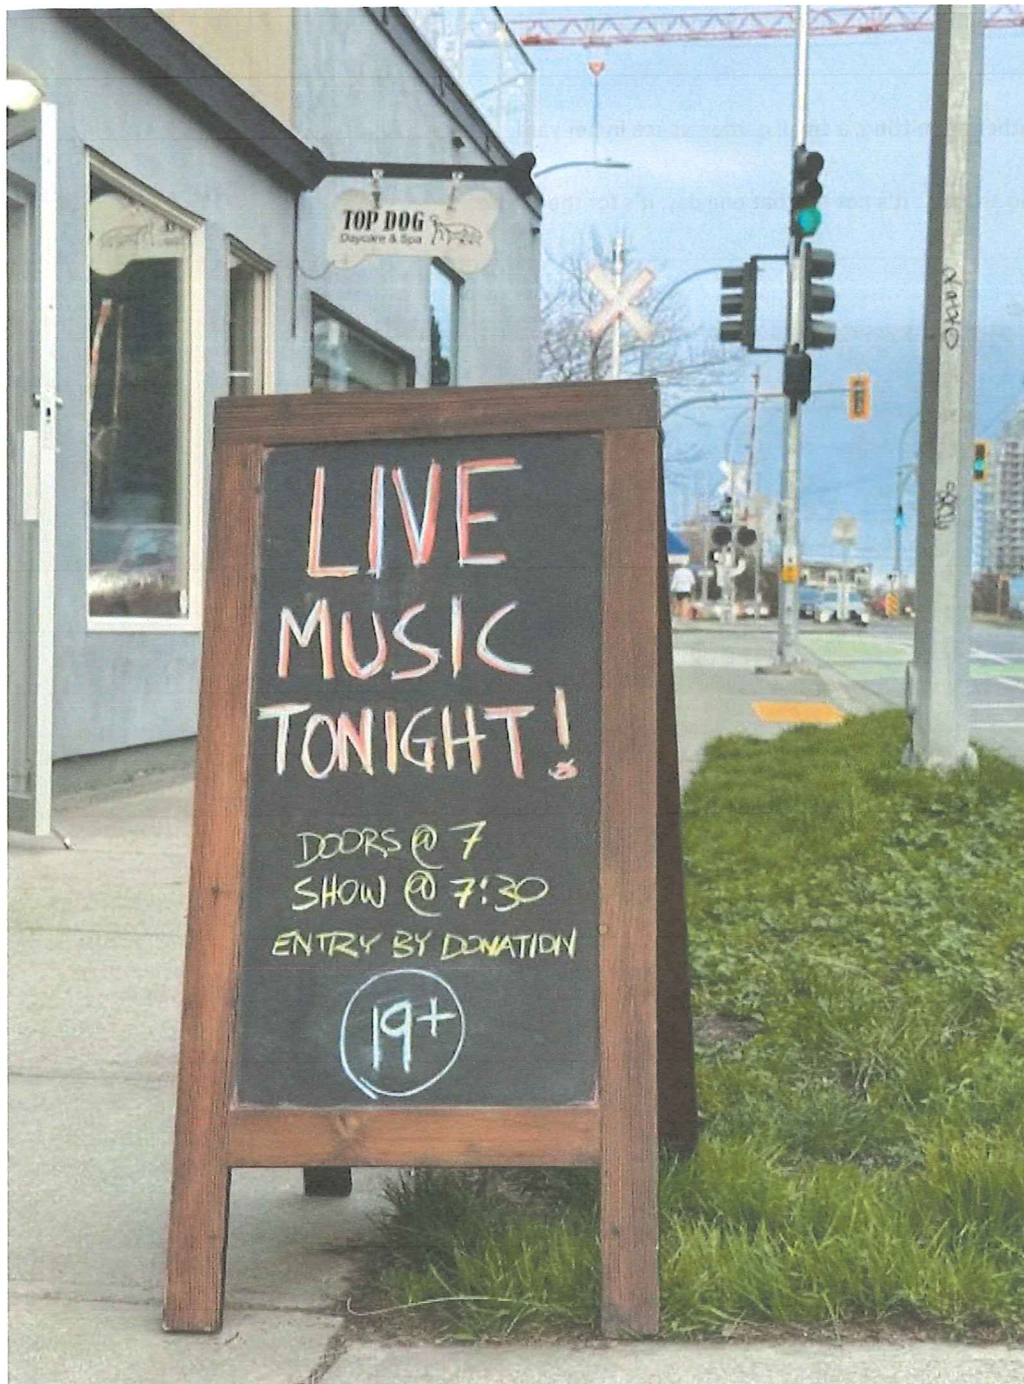 TOP DOG
Daycare & Spa
LIVE
MUSIC
TONIGHT!
DOORS @ 7
SHOW @ 7:30
ENTRY BY DONATION
19+